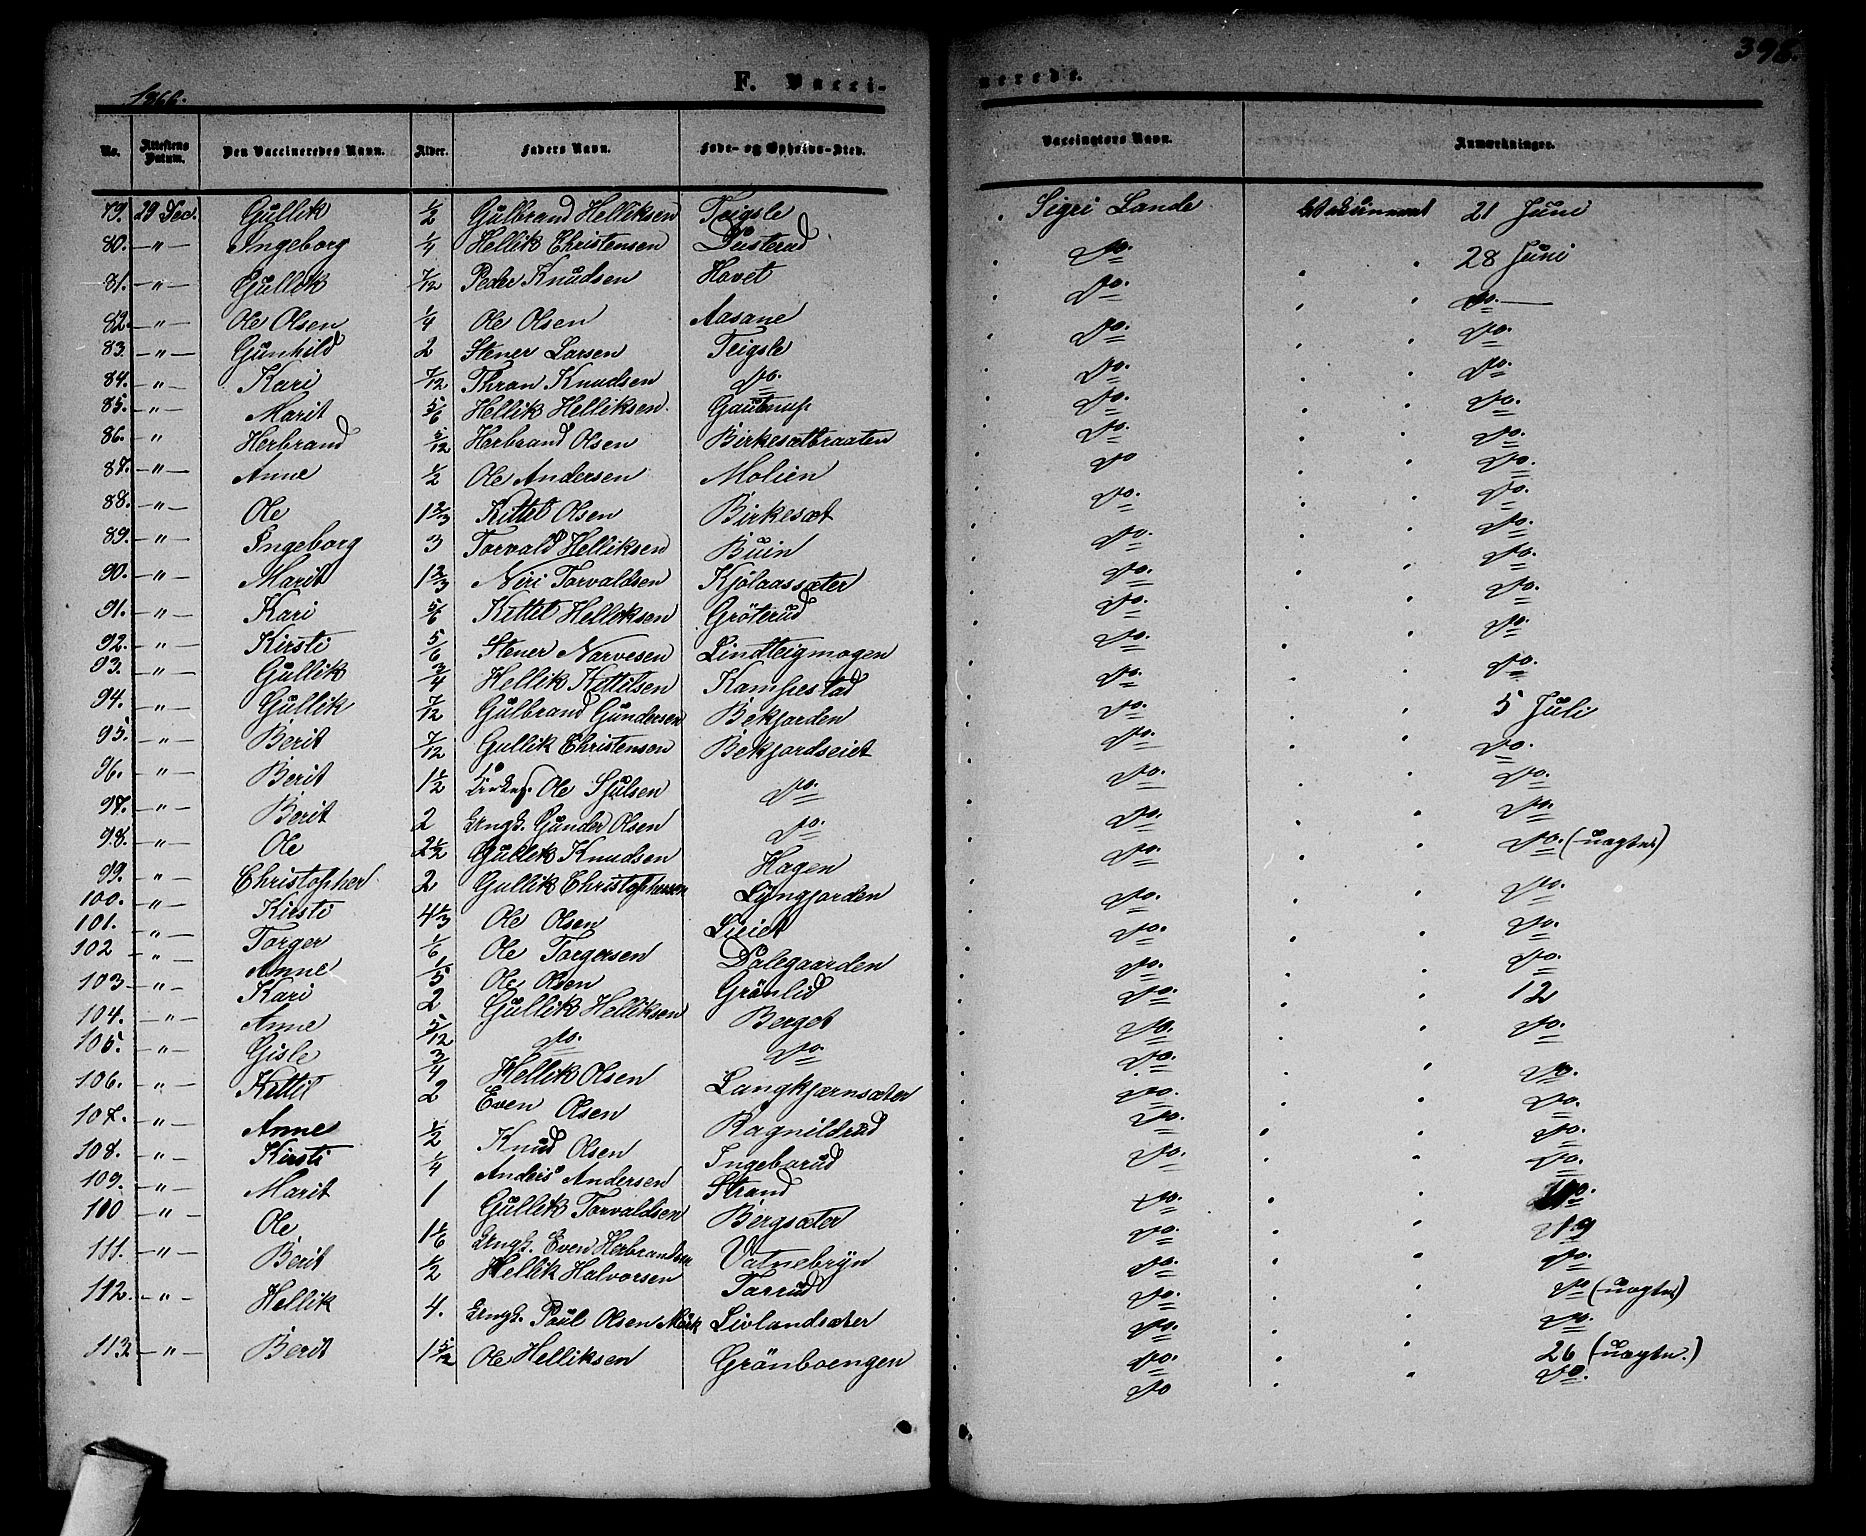 398.
1866.
F. Vacci-
nerede.
No. Attestens Datum. Den Vaccineredes Navn. Alder. Faders Navn. Føde- og Opholds-Sted. Vaccinators Navn. Anmærkninger.
79. 29 Dec. Gullik 1/2 Gulbrand Helliksen Teigsle Sigri Lande Vakcineret 21 Juni
80. —"— Ingeborg 1/4 Hellik Christensen Do. 28 Juni
81. —"— Gullik 7/12 Peder Knudsen Havet Do. Do. —
82. —"— Ole Olsen 1/4 Ole Olsen Aasane Do. Do.
83. —"— Gunhild 2 Stener Larsen Teigsle Do. Do.
84. —"— Kari 7/12 Thran Knudsen Do. Do. Do.
85. —"— Marit 5/6 Hellik Helliksen Do. Do.
86. —" Herbrand 5/12 Herbrand Olsen Birkesætbraaten Do. Do.
87. —"— Anne 1/2 Ole Andersen Molien Do Do.
88. —"— Ole 1 2/3 Kittil Olsen Birkesæt Do. Do.
89. —"— Ingeborg 3 Torvald Helliksen Buin Do. Do.
90. —"— Marit 1 2/3 Niri Torvaldsen Kjölaassæter Do. Do.
91. —"— Kari 5/6 Kittil Helliksen Gröterud Do. Do.
92. —"— Kirsti 5/6 Stener Narvesen Lindteigmogen Do. Do.
93. —"— Gullik 3/4 Hellik Kittilsen Kampestad Do. Do.
94. —"— Gullik 7/12 Gulbrand Gundersen Bekjorden Do. 5 Juli
95. —"— Berit 7/12 Gullik Christensen Bekjordseiet Do. Do.
96. —"— Berit 1 1/2 Ole Sjulsen Do. Do. Do.
97. —"— Berit 2 Ungk. Gunder Olsen Do. Do. Do.
98. —"— Ole 2 1/2 Gullik Knudsen Hagen Do. Do. (uægte)
99. —"— Christopher 2 Gullik Christophersen Lyngjorden Do. Do.
100. —"— Kirsti 4 1/3 Ole Olsen Lieiet Do. Do.
101. —"— Torger 1/6 Ole Torgersen Dalegaarden Do. Do.
102 —"— Anne 1/5 Ole Olsen Grönlid Do. 12
103 —"— Kari 2 Gullik Helliksen Berget Do. Do.
104. —"— Anne 5/12 Do. Do. Do. Do.
105. —"— Gisle 3/4 Hellik Olsen Langkjærnsæter Do. Do.
106. —"— Kittil 2 Even Olsen Ragnildrud Do. Do.
107. —"— Anne 1/2 Knud Olsen Ingeborud Do. Do.
108. —"— Kirsti 1/4 Anders Andersen Strand Do. Do.
109. —"— Marit 1 Gullik Torvaldsen Bergsæter Do. 19
110 —"— Ole 1 1/6 Ungk. Even Herbrandsen Vatnebryn Do. Do.
111. —"— Berit 1/2 Hellik Halvorsen Torrud Do. Do. (uægte)
112. —"— Hellik 4. Ungk. Paul Olsen Mörk Livlandsæter Do. 26 (uægte.)
113 —"— Berit 1 5/12 Ole Helliksen Grönboengen Do Do.